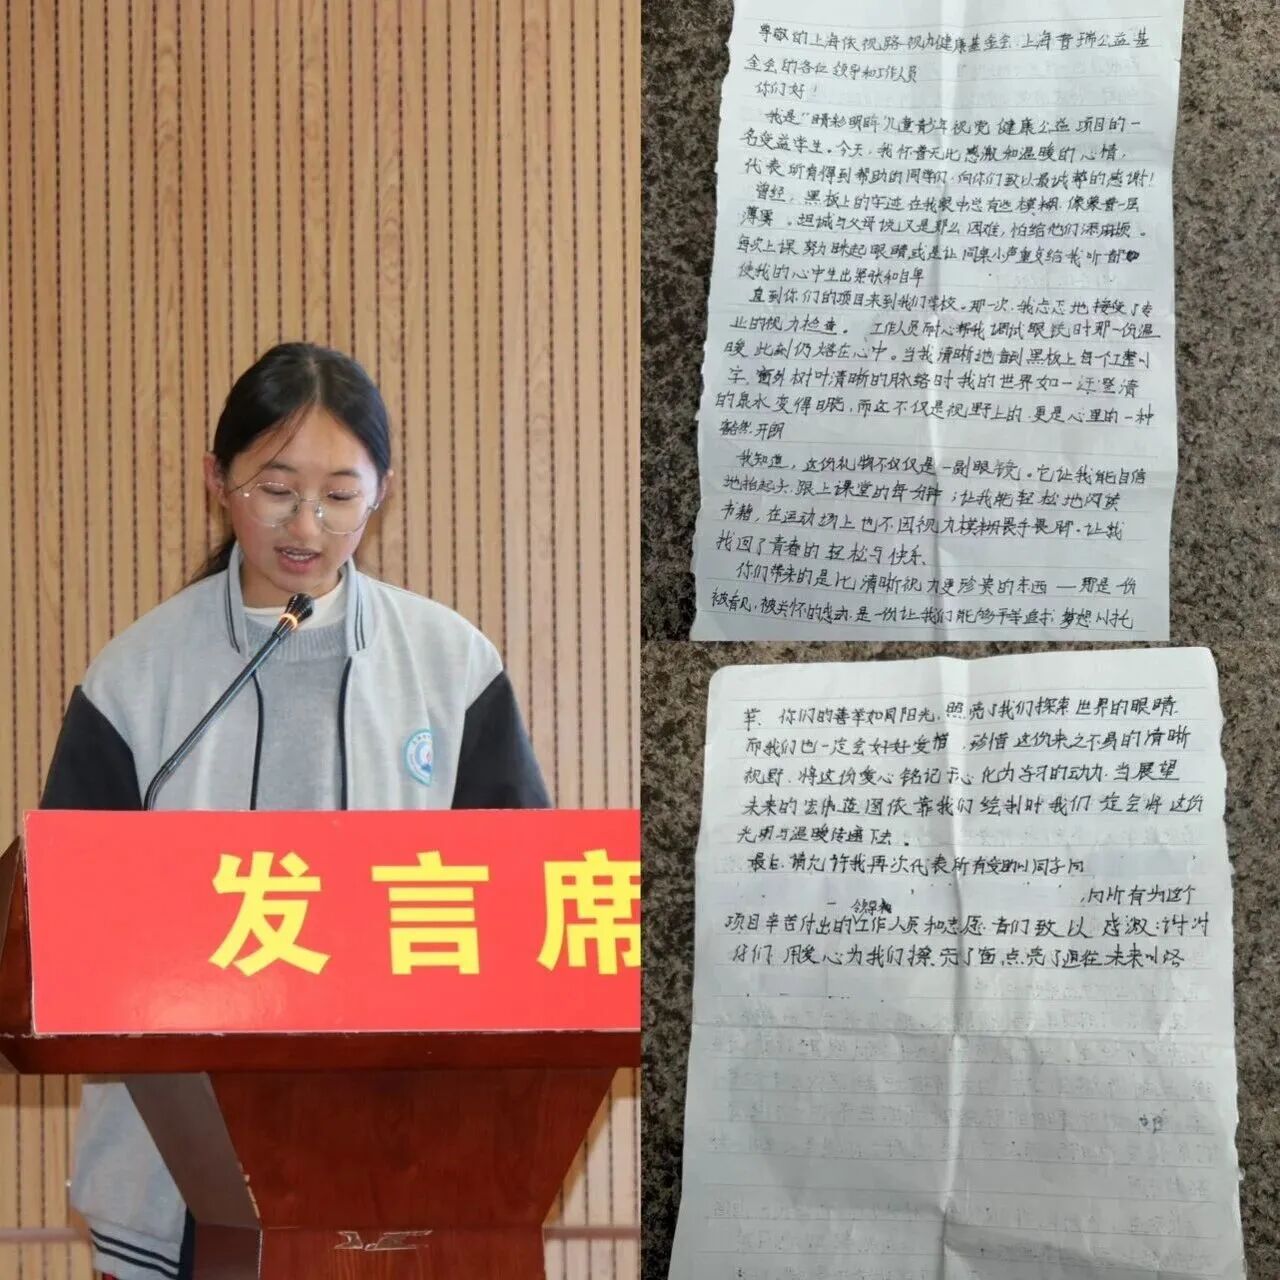 发言席
尊敬的上海依视路视力健康基金会、上海普瑞公益基
金会的各位领导和工作人员
你们好！
我是“睛彩明眸”儿童青少年视觉健康公益项目的一
名受益学生。今天，我怀着无比感激和温暖的心情，
代表所有得到帮助的同学们，向你们致以最诚挚的感谢！
曾经，黑板上的字迹在我眼中总有些模糊，像蒙着一层
薄雾。坦诚与父母说又是那么困难，怕给他们添麻烦。
每次上课努力眯起眼睛或是让同桌小声重复给我听都
使我的心中生出紧张和自卑
直到你们的项目来到我们学校。那一次，我忐忑地接受了专
业的视力检查。工作人员耐心帮我调试眼镜时那一份温
暖，此刻仍烙在心中。当我清晰地看到黑板上每个工整的
字，窗外树叶清晰的脉络时我的世界如一汪澄清
的泉水变得明晓，而这不仅是视野上的，更是心里的一种
豁然开朗
我知道，这份礼物不仅仅是一副眼镜。它让我能自信
地抬起头，跟上课堂的每分钟；让我能轻松地阅读
书籍，在运动场上也不因视力模糊畏手畏脚，让我
找回了青春的轻松与快乐。
你们带来的是比清晰视力更珍贵的东西——那是一份
被看见，被关怀的感动，是一份让我们能够平等追求梦想的托
举、你们的善举如同阳光，照亮了我们探索世界的眼睛.
而我们也一定会好好爱惜，珍惜这份来之不易的清晰
视野，将这份爱心铭记于心化为学习的动力，当展望
未来的宏伟蓝图依靠我们绘制时我们一定会将这份
光明与温暖传递下去。
最后，请允许我再次代表所有受助的同学向
，向所有为这个
领导和
项目辛苦付出的工作人员和志愿者们致以感激：谢谢
你们，用爱心为我们擦亮了窗，点亮了通往未来的路